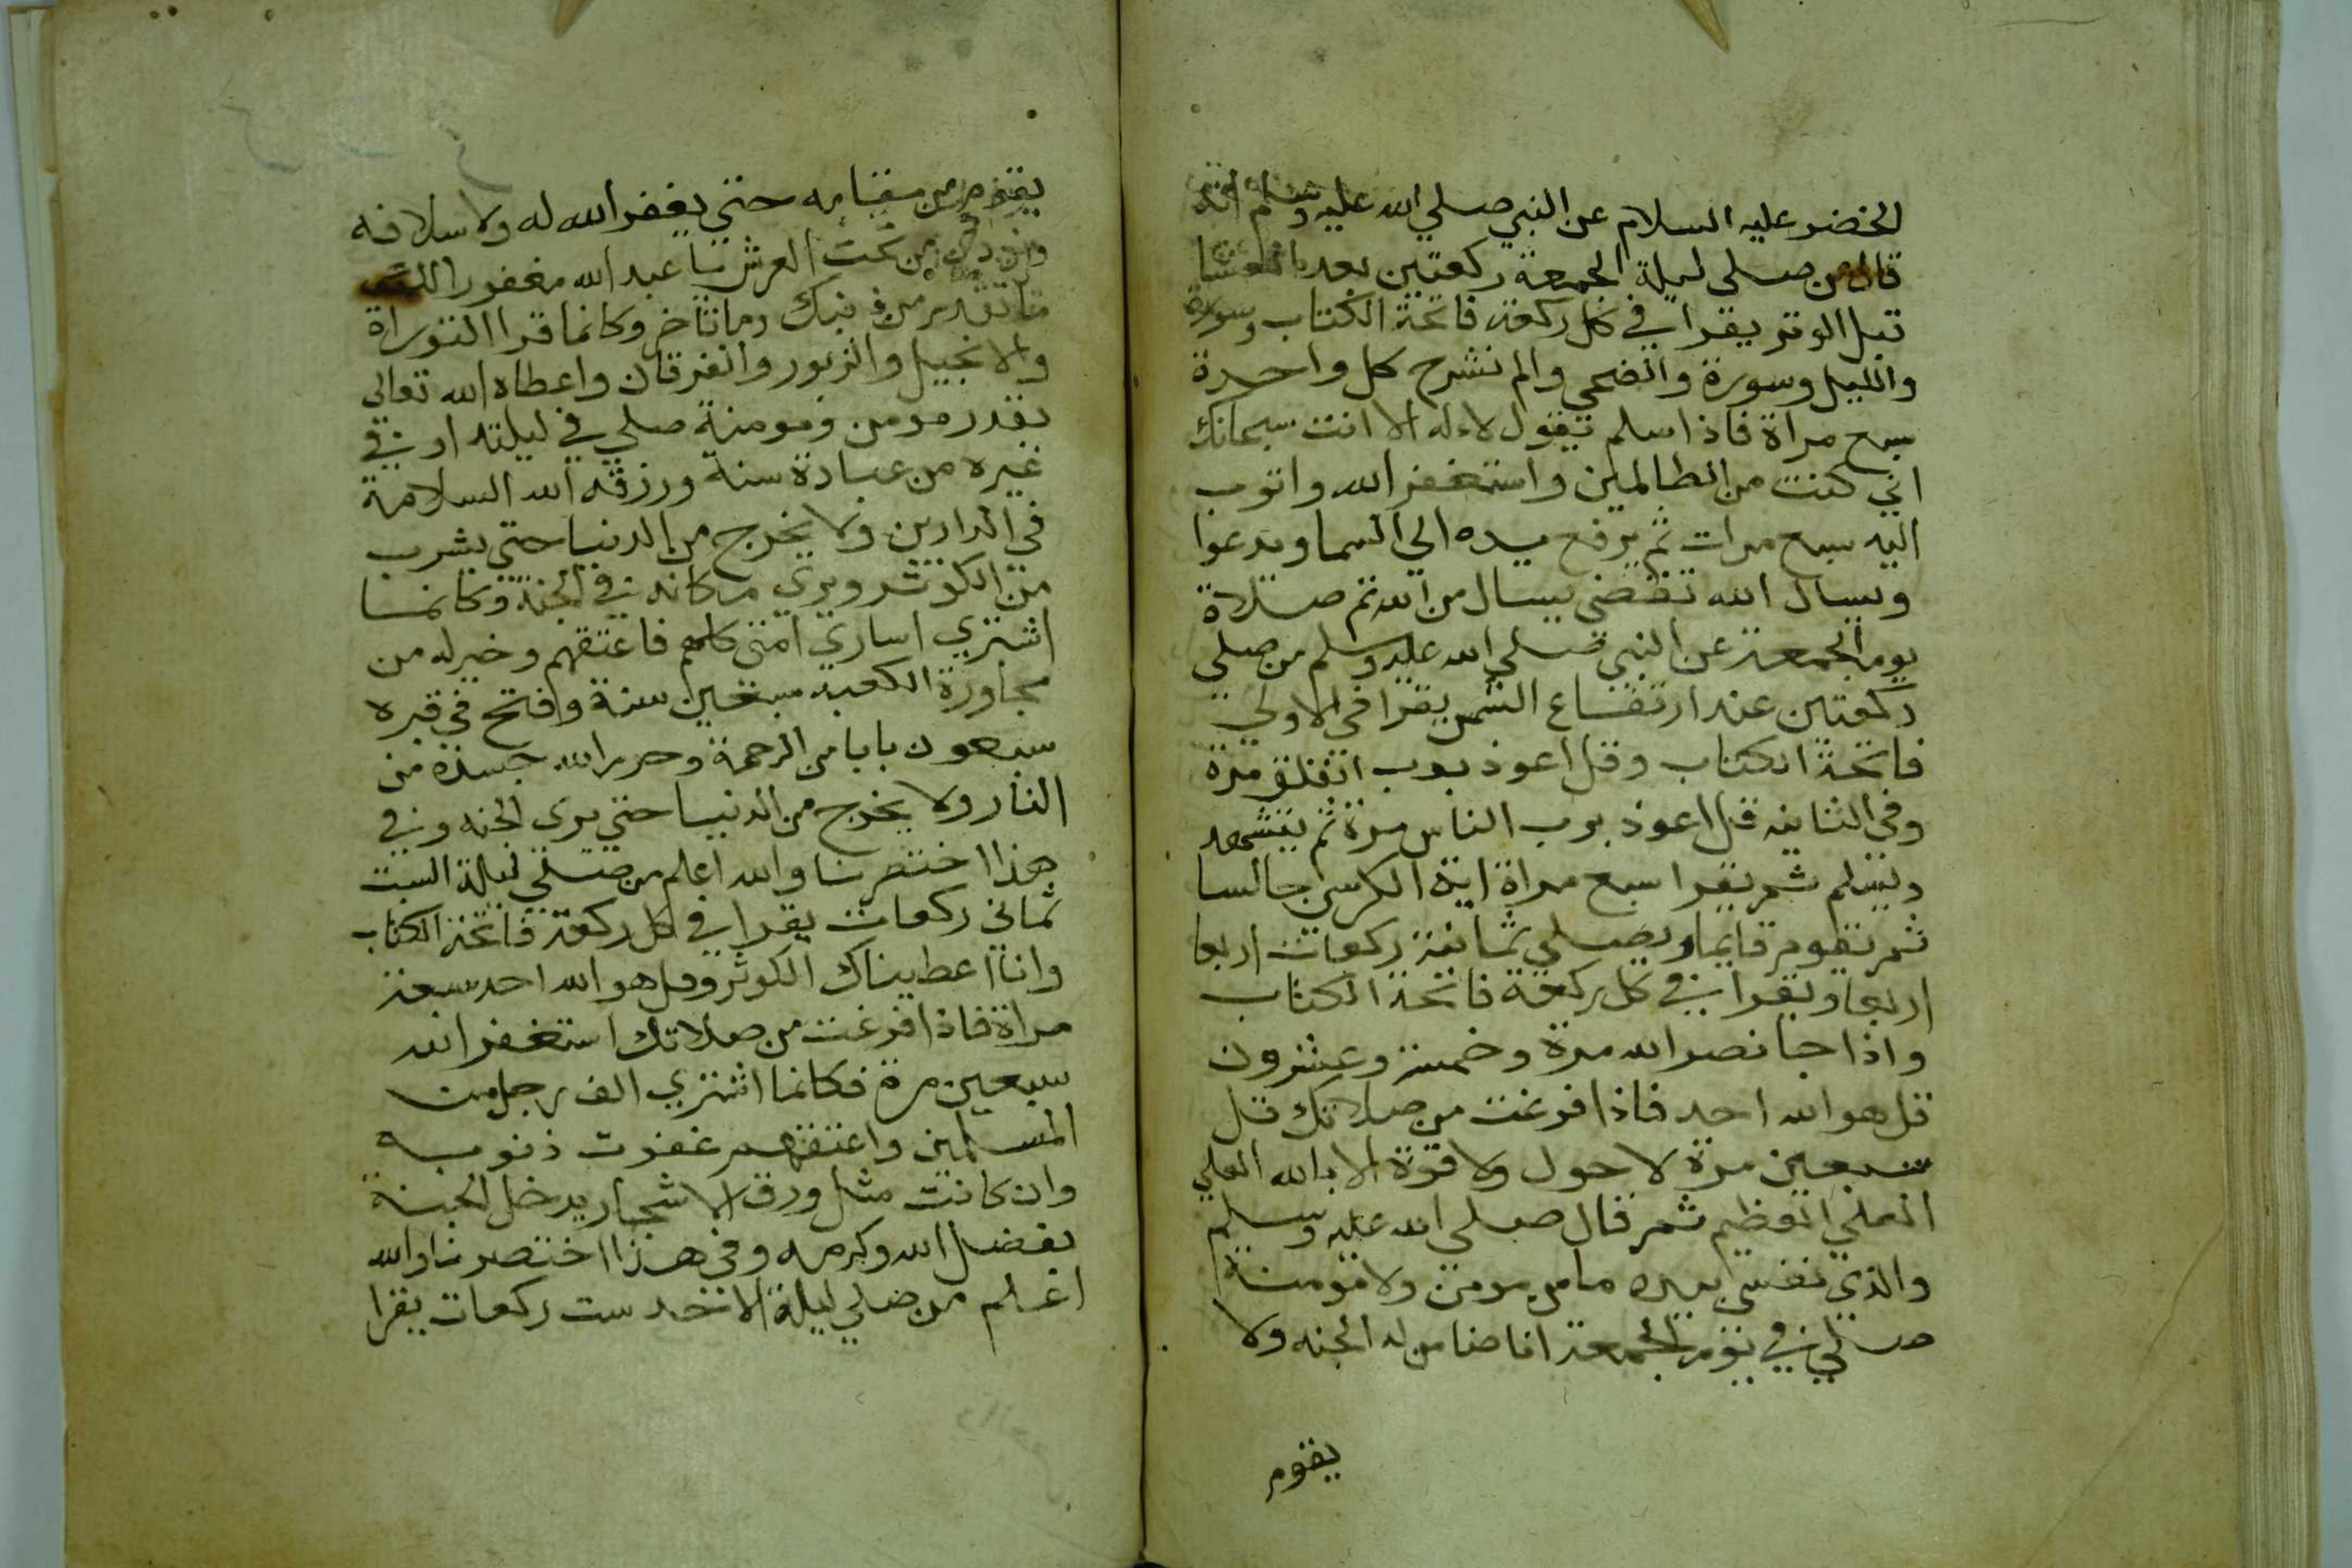 الخضر عليه السلام عن النبي صلي الله عليه وسلم انه
قال من صلى ليلة الجمعة ركعتين بعد العشا
قبل الوتر يقرا في كل ركعة فاتحة الكتاب وسورة
والليل وسورة والضحى والم نشرح كل واحدة
سبع مراة فاذا سلم تقول لا اله الا انت سبحانك
اني كنت من الظالمين واستغفر الله واتوب
اليه سبع مرات ثم يرفع يده الي السما ويدعوا
ويسال الله تقضى يسال من الله تم صلاة
يوم الجمعة عن النبي صلي الله عليه وسلم من صلي
ركعتين عند ارتفاع الشمس يقرا في الاولي
فاتحة الكتاب وقل اعوذ برب الفلق مرة
وفي الثانيه قل اعوذ برب الناس مرة ثم يتشهد
ويسلم ثم يقرا سبع مراة اية الكرسي جالسا
ثم يقوم قايما ويصلي ثمانية ركعات اربعا
اربعا ويقرا في كل ركعة فاتحة الكتاب
واذا جا نصر الله مرة وخمسة وعشرون
قل هو الله احد فاذا فرغت من صلاتك قل
سبعين مرة لا حول ولا قوة الا بالله العلي
العلي العظيم ثم قال صلي الله عليه وسلم
والذي نفسي بيده ما من مومن ولا مومنة
صلي في يوم الجمعة انا ضامن له الجنه ولا
يقوم
يقوم من مقامه حتي يغفر الله له ولاسلافه
من تحت العرش يا عبد الله مغفورا لك
ما تقدم من ذنبك وما تاخر وكانما قرا التوراة
والانجيل والزبور والفرقان واعطاه الله تعالى
بقدر مومن ومومنة صلي في ليلته او في
غيره من عبادة سنة ورزقه الله السلامة
في الدارين ولا يخرج من الدنيا حتي يشرب
من الكوثر ويري مكانه في الجنة وكانما
اشتري اساري امتي كلهم فاعتقهم وخير له من
مجاورة الكعبه سبعين سنة وافتح في قبره
سبعون بابا من الرحمة وحرم الله جسده من
النار ولا يخرج من الدنيا حتي يرى الجنه وفي
هذا اختصرنا والله اعلم من صلي ليلة السبت
ثماني ركعات يقرا في كل ركعة فاتحة الكتاب
وانا اعطيناك الكوثر وقل هو الله احد سبعة
مراة فاذا فرغت من صلاتك استغفر الله
سبعين مرة فكانما اشتري الف رجل من
المسلمين واعتقهم غفرت ذنوبه
وان كانت مثل ورق الاشجار يدخل الجنة
بفضل الله وكرمه وفي هذا اختصرنا والله
اعلم من صلي ليلة الاحد ست ركعات يقرا